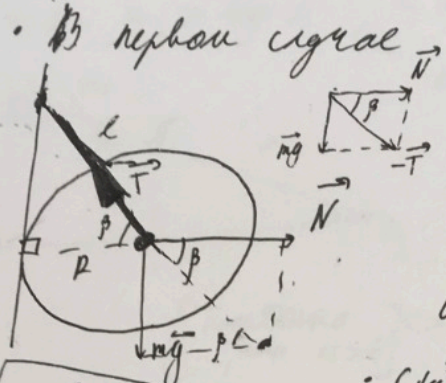 • В первом случае
N
β
mg
-T
l
T
N
β
R
β
mg